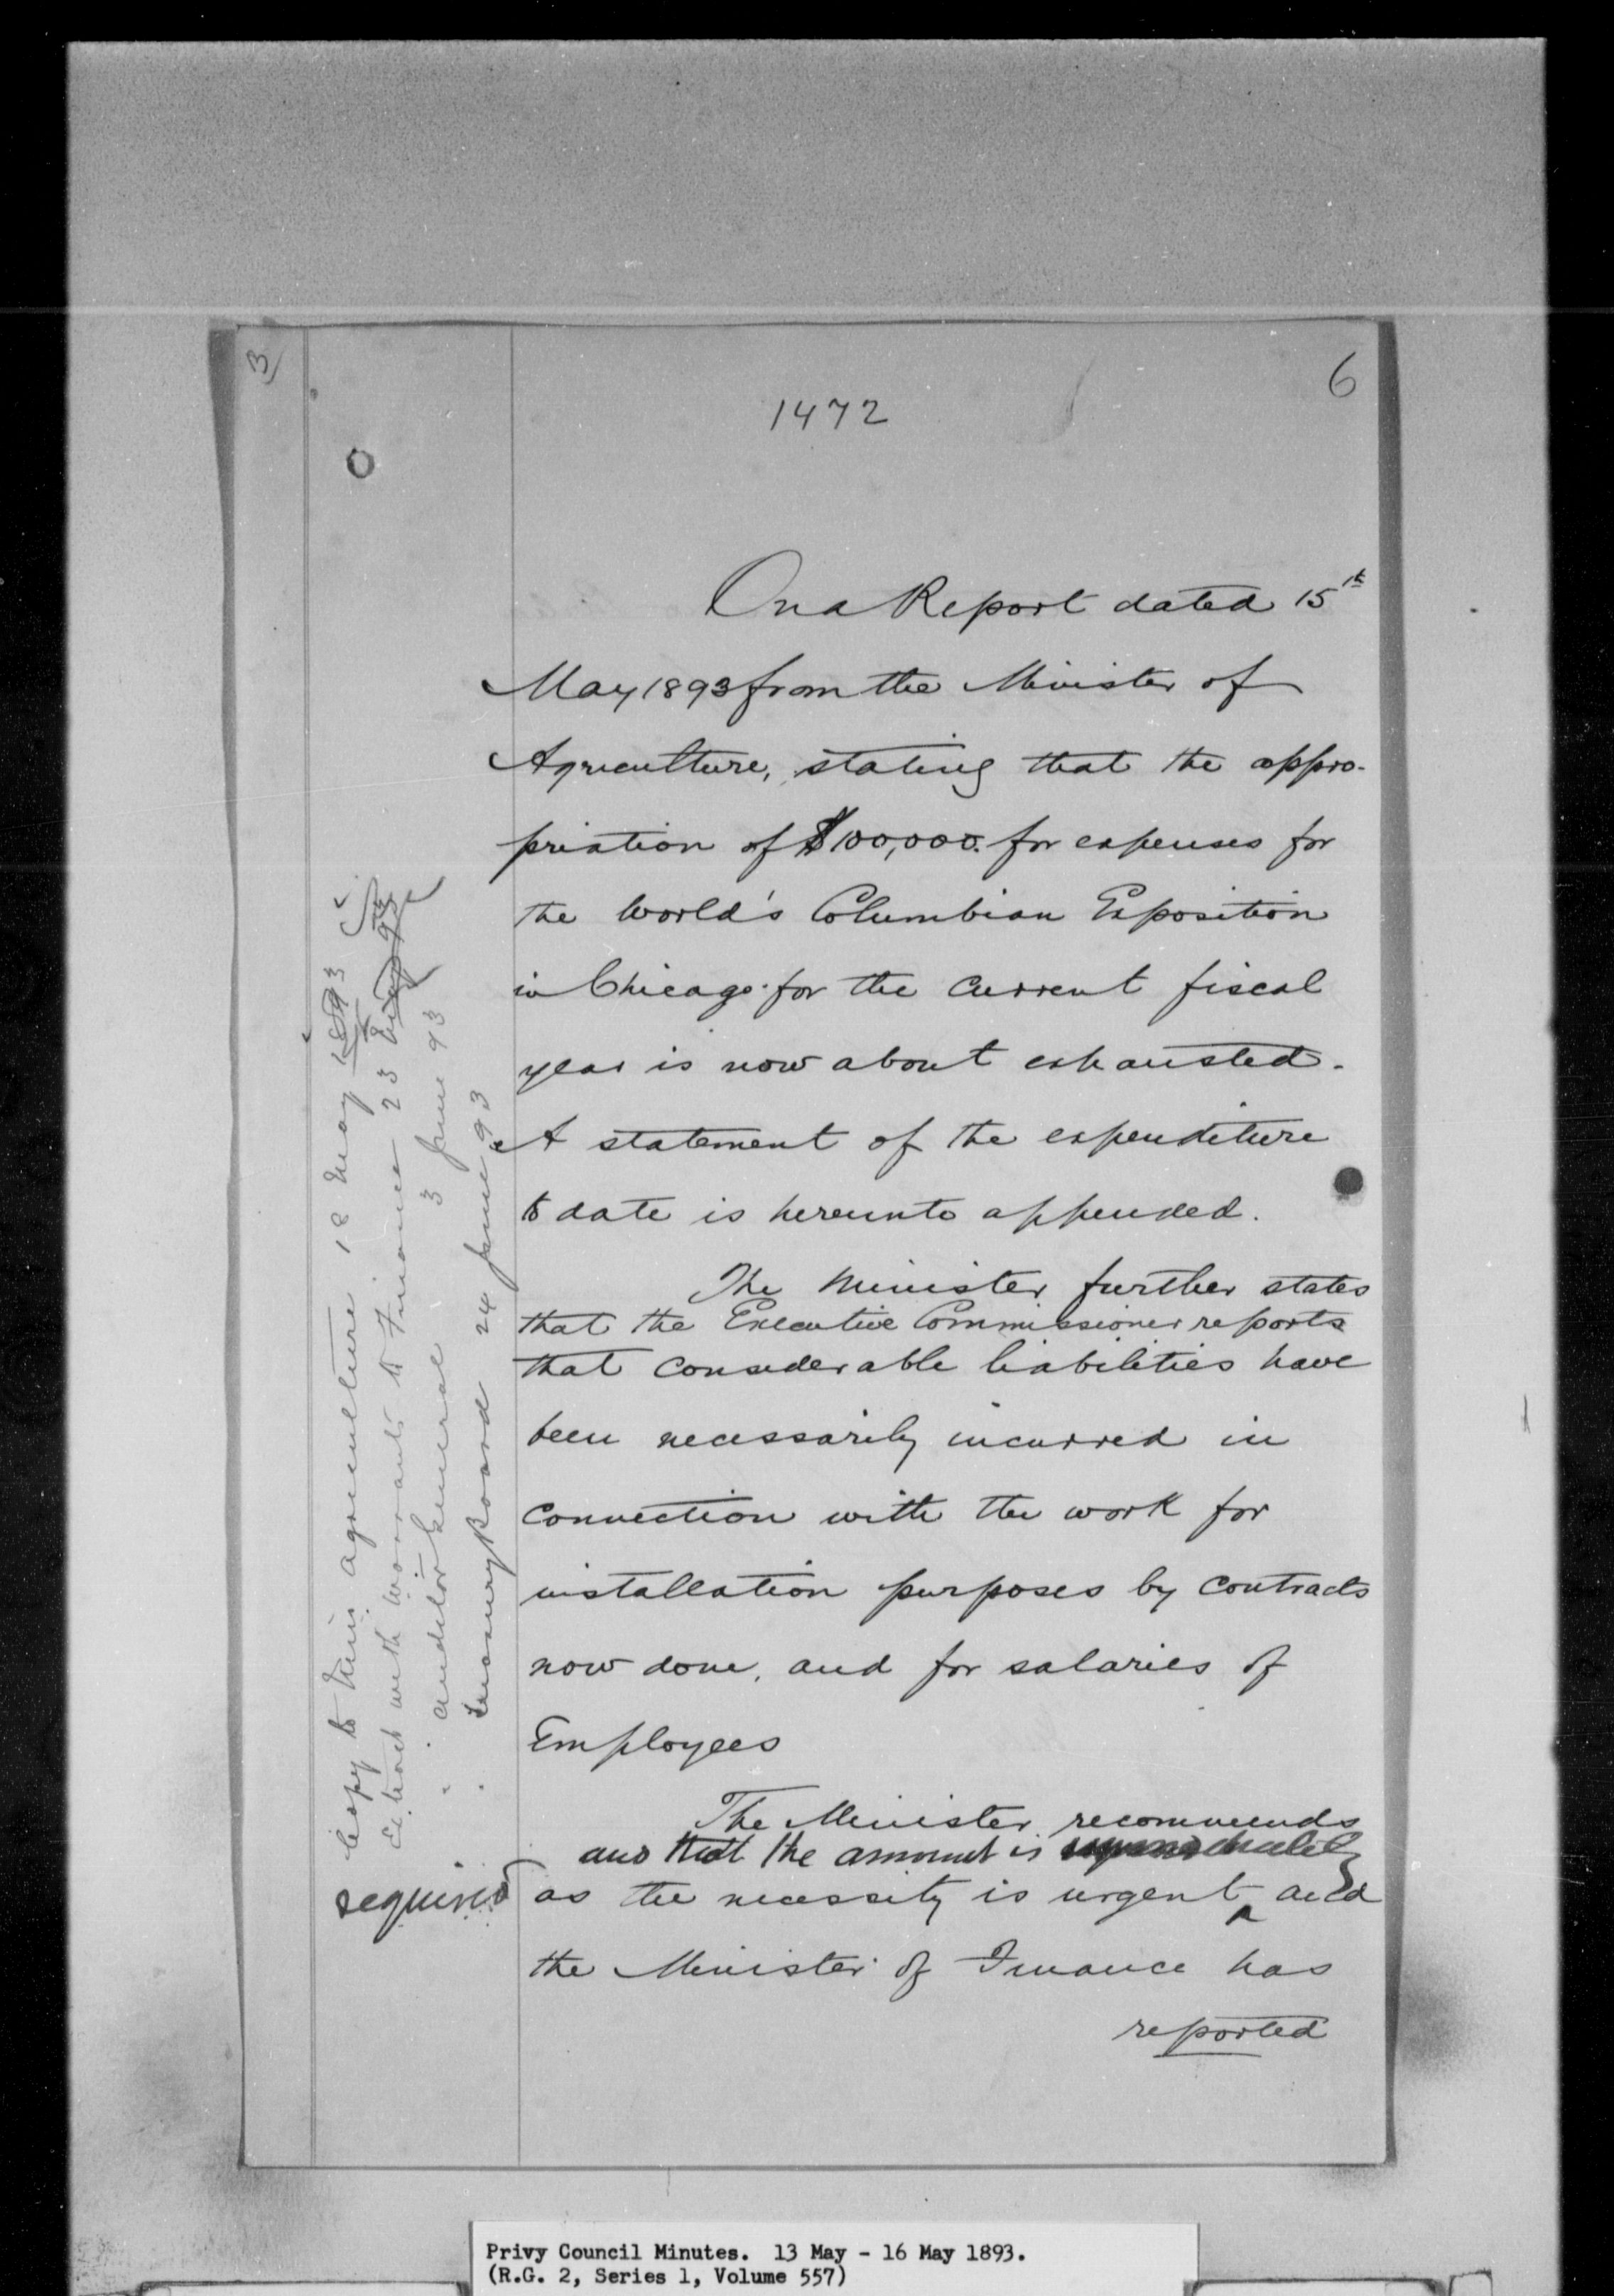 3
6
1472
On a Report dated 15th
May 1893 from the Minister of
Agriculture, stating that the appro-
priation of $100,000. for expenses for
the World's Columbian Exposition
in Chicago for the current fiscal
year is now about exhausted.
A statement of the expenditure
to date is hereunto appended.
The Minister further states
that the Executive Commissioner reports
that considerable liabilities have
been necessarily incurred in
connection with the work for
installation purposes by contracts
now done, and for salaries of
Employees
The Minister recommends
and that the amount is immediately
required
as the necessity is urgent ^ and
the Minister of Finance has
reported
Copy to Min. Agriculture 18 May 1893
Extract with warrants to Finance 23
" " Auditor General 3 June 93
" Treasury Board 24 June 93
Privy Council Minutes. 13 May - 16 May 1893.
(R.G. 2, Series 1, Volume 557)